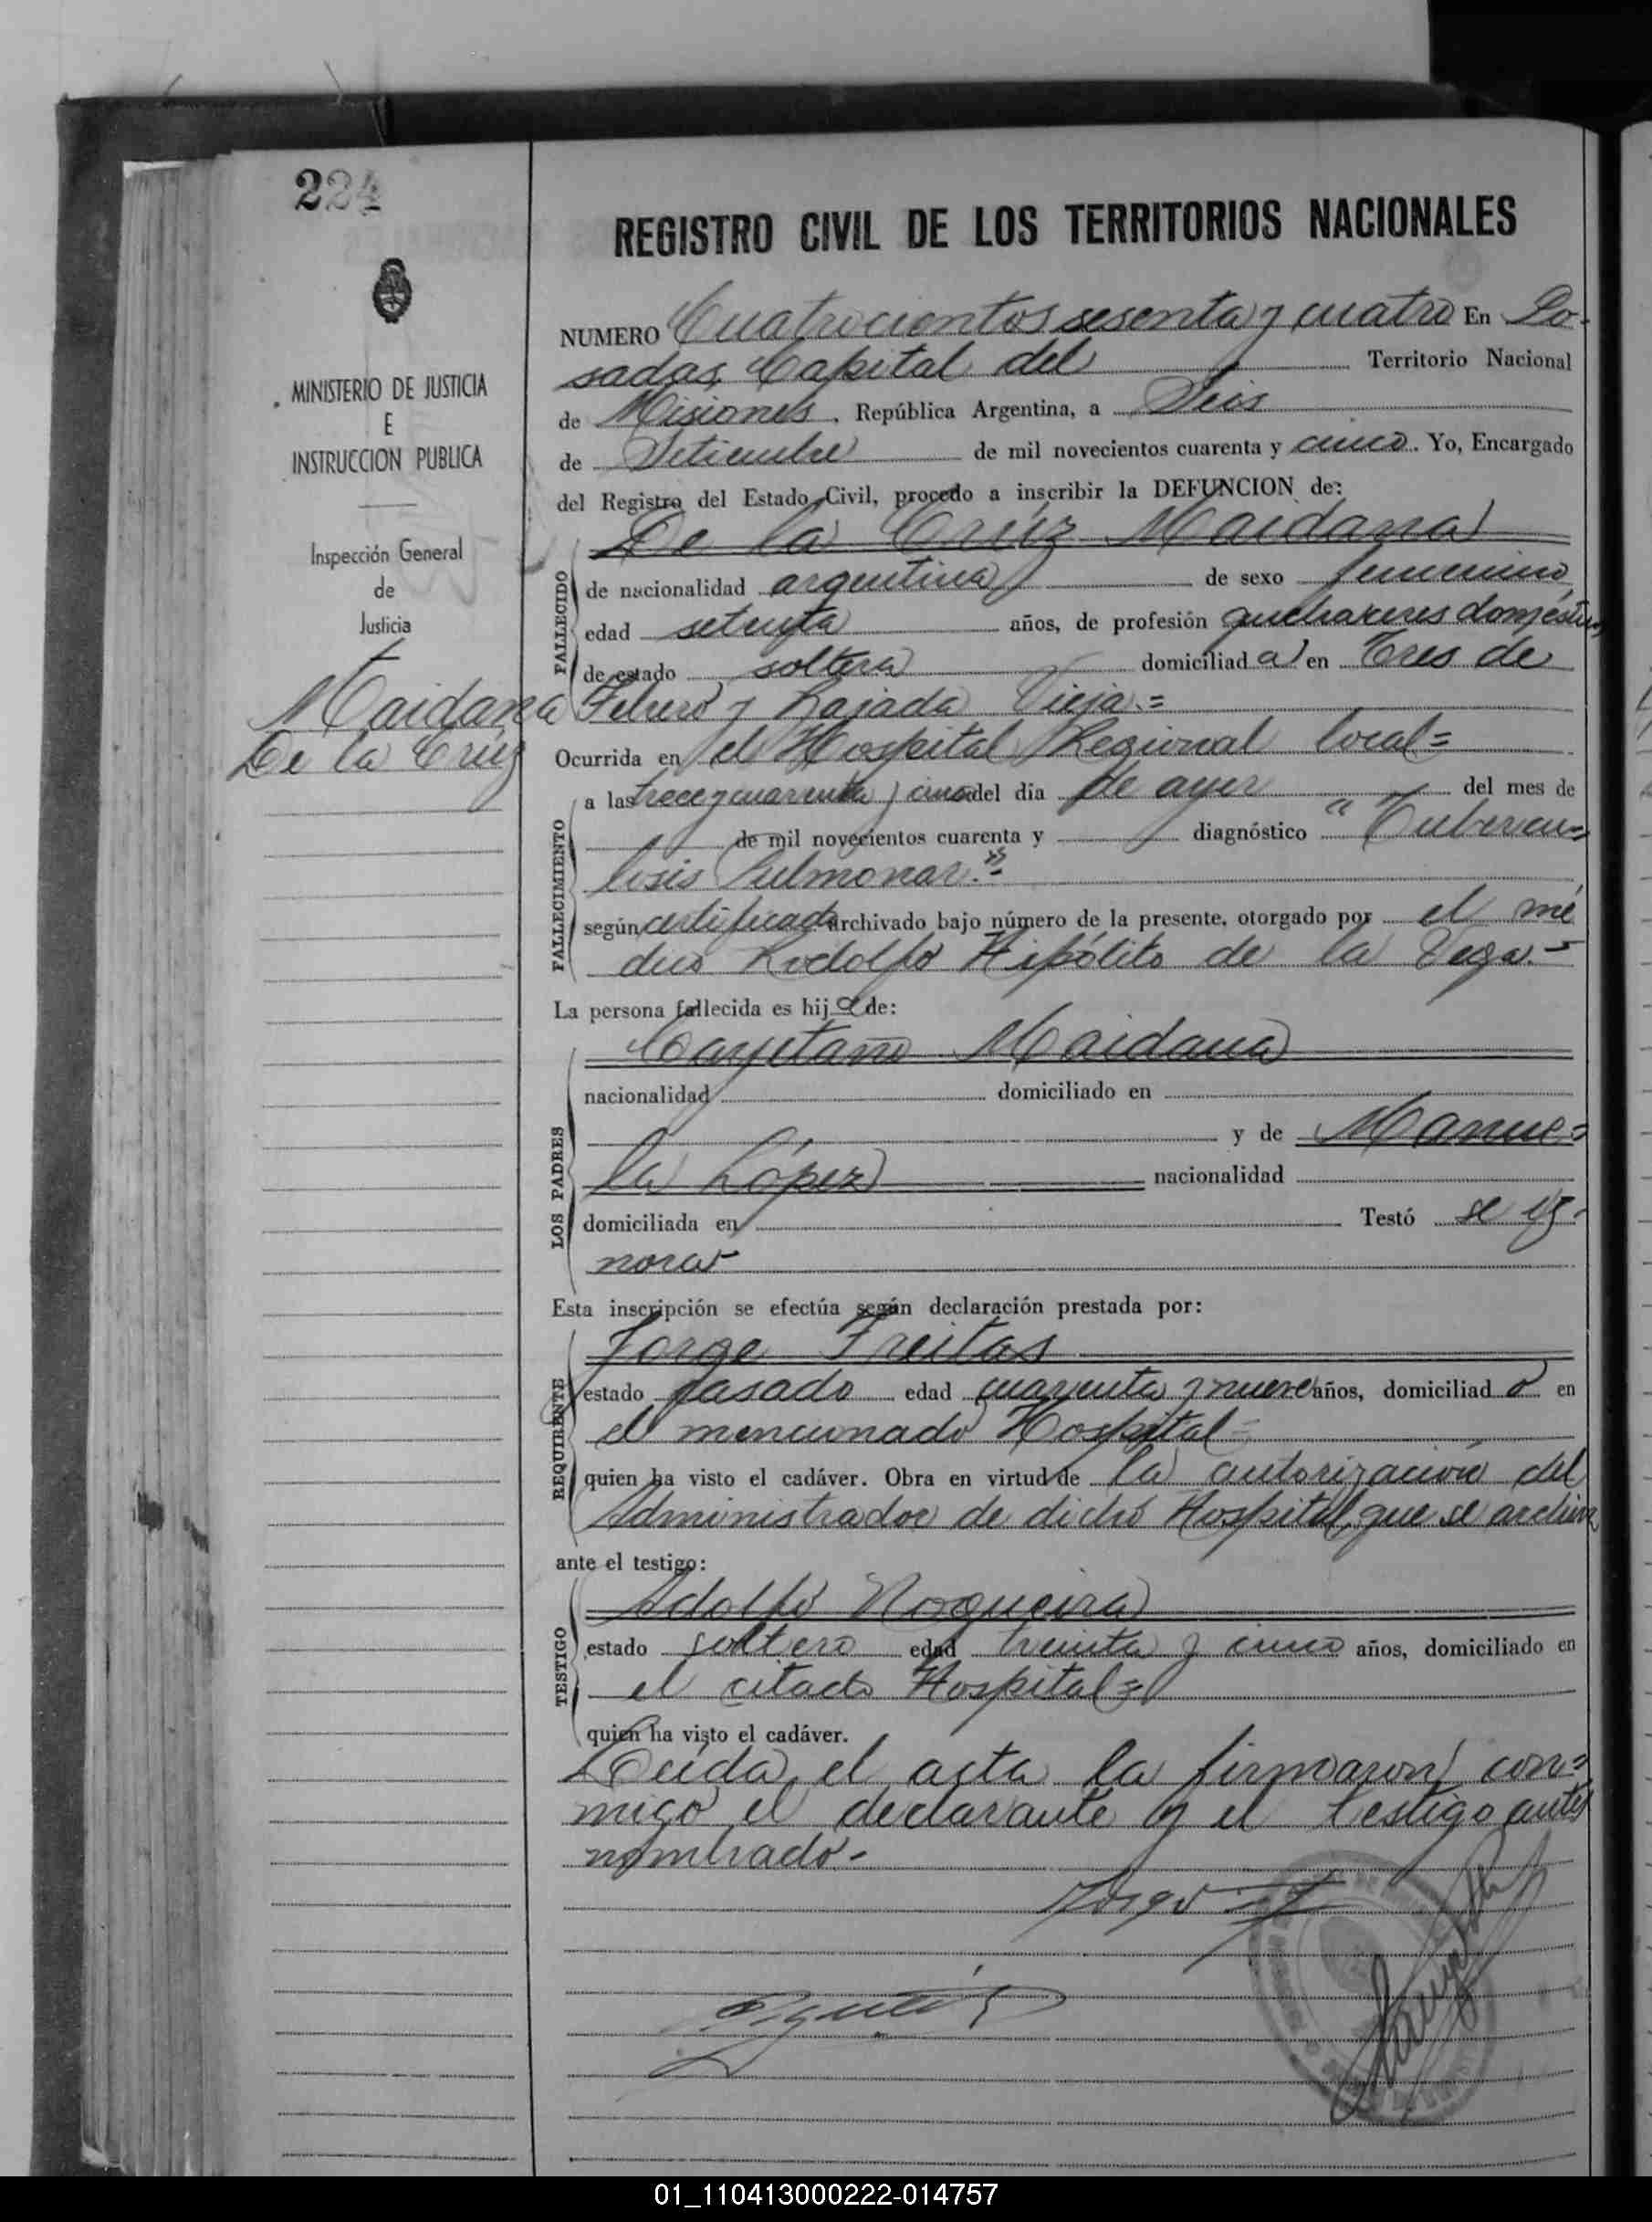 224
REGISTRO CIVIL DE LOS TERRITORIOS NACIONALES
MINISTERIO DE JUSTICIA
E
INSTRUCCION PUBLICA
Inspección General
de
Justicia
Maidana
De la Crúz
NUMERO Cuatrocientos sesenta y cuatro En Po-
sadas, Capital del Territorio Nacional
de Misiones, República Argentina, a Seis
de Setiembre de mil novecientos cuarenta y cinco. Yo, Encargado
del Registro del Estado Civil, procedo a inscribir la DEFUNCION de:
De la Crúz Maidana
FALLECIDO
de nacionalidad argentina de sexo femenino
edad setenta años, de profesión quehaceres domésticos
de estado soltera domiciliad a en Tres de
Febrero y Bajada Vieja.=
Ocurrida en el Hospital Regional local=
FALLECIMIENTO
a las trece y cuarenta y cinco del día de ayer del mes de
de mil novecientos cuarenta y diagnóstico "Tubercu=
losis Pulmonar."-
según certificado archivado bajo número de la presente, otorgado por el mé
dico Rodolfo Hipólito de la Vega.-
La persona fallecida es hij a de:
LOS PADRES
Cayetano Maidana
nacionalidad domiciliado en
y de Manue=
la López nacionalidad
domiciliada en Testó se ig-
nora-
Esta inscripción se efectúa según declaración prestada por:
REQUIRENTE
Jorge Freitas
estado casado edad cuarenta y nueve años, domiciliad o en
el mencionado Hospital=
quien ha visto el cadáver. Obra en virtud de la autorización del
Administrador de dicho Hospital, que se archiva
ante el testigo:
TESTIGO
Adolfo Nogueira
estado soltero edad treinta y cinco años, domiciliado en
el citado Hospital=
quien ha visto el cadáver.
Leída el acta la firmaron con=
migo el declarante y el testigo antes
nombrado.-
Jorge
01_110413000222-014757